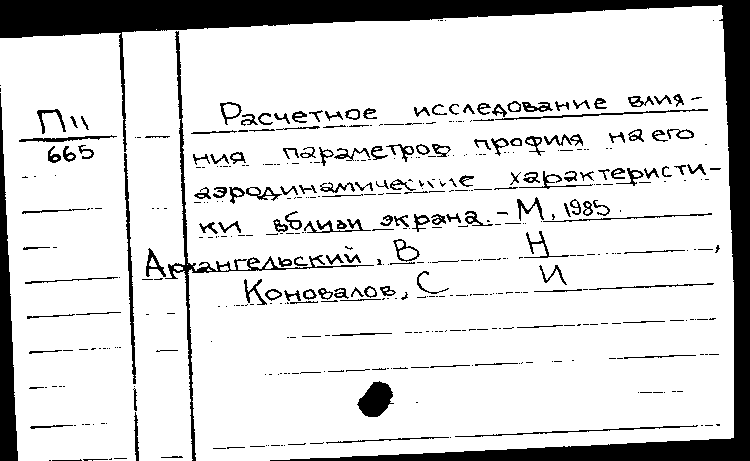 П11
665
Расчетное исследование влия-
ния параметров профиля на его
аэродинамические характеристи-
ки вблизи экрана. - М, 1985.
Архангельский, В Н,
Коновалов, С И